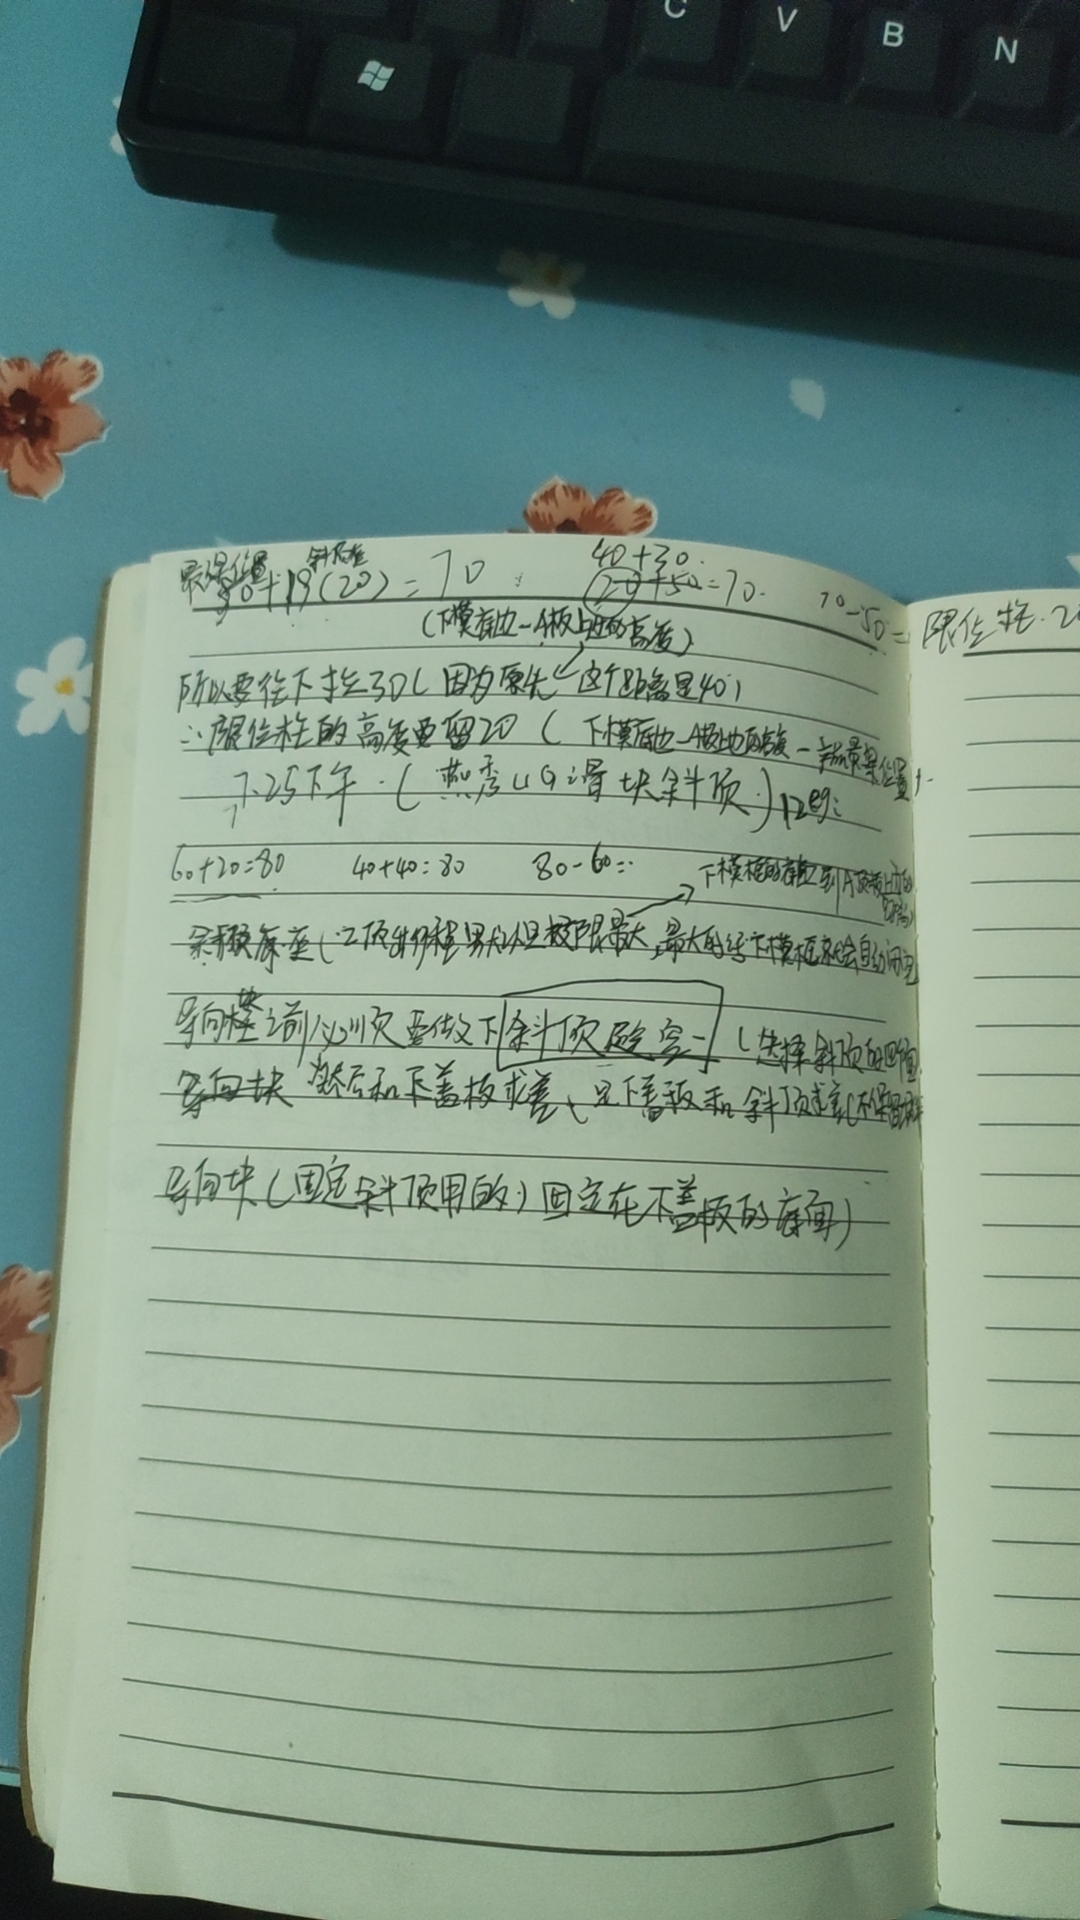 C V B N
最深位置 斜顶座 40+30
50+19(20)=70 (20)+50=70. 70-50=
(下模底边-A板上边的高度)
限位柱.20
所以要往下拉30(因为原先这个距离是40)
∴限位柱的高度要留20(下模底边-A板上边的高度-斜顶最深位置)
7.25下午.(燕秀UG滑块斜顶)
60+20=80 40+40=80 80-60=
下模框的底边到A顶板上面的距离
斜顶底座(顶出行程默认极限最大,最大的话下模框就会自动
导向块之前必须要做下斜顶避空 (选择斜顶的四个面
导向块 然后和下盖板求差、是下盖板和斜顶求差(不保留
导向块(固定斜顶用的)固定在下盖板的底面)